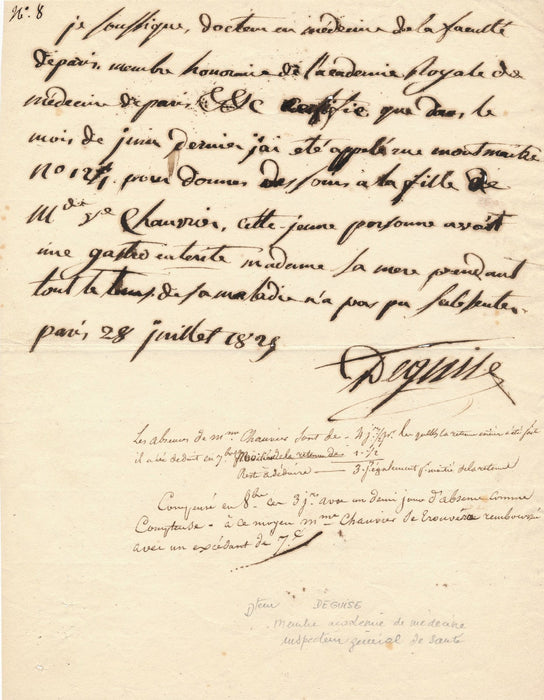 N°. 8
je soussigné, docteur en médecine de la faculté
de paris, membre honoraire de l'academie Royale de
médecine de paris &c certifie que dans le
mois de juin dernier j'ai été appelé rue montmartre
N° pour donner des soins à la fille de
Md Ve Chauvier, cette jeune personne avait
une gastro enterite madame sa mere pendant
tout le tems de sa maladie n'a pas pu s'absenter.
paris 28 juillet 182
Deguise
Les absences de mme Chauvier sont de - 4 j. la retenue entière a été faite
il a été déduit en 7bre Moitié de la retenue de 1-1/2
Reste à déduire — 3. également moitié de la retenue
Compensé en 8bre ces 3 jrs avec un demi jour d'absence comme
Compteuse - à ce moyen mme Chauvier se trouvera remboursée
avec un excédant de 7c
Dteur DEGUISE
Membre académie de médecine
inspecteur général de santé